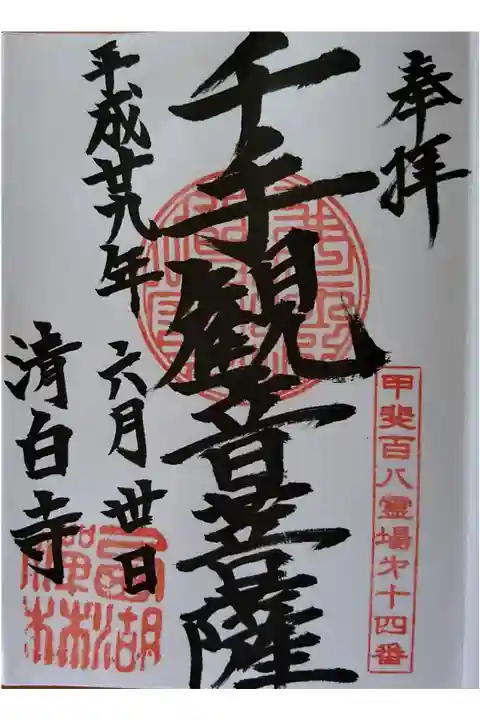 奉拝
甲斐百八霊場第十四番
千手観音菩薩
平成廿九年
六月卅日
清白寺